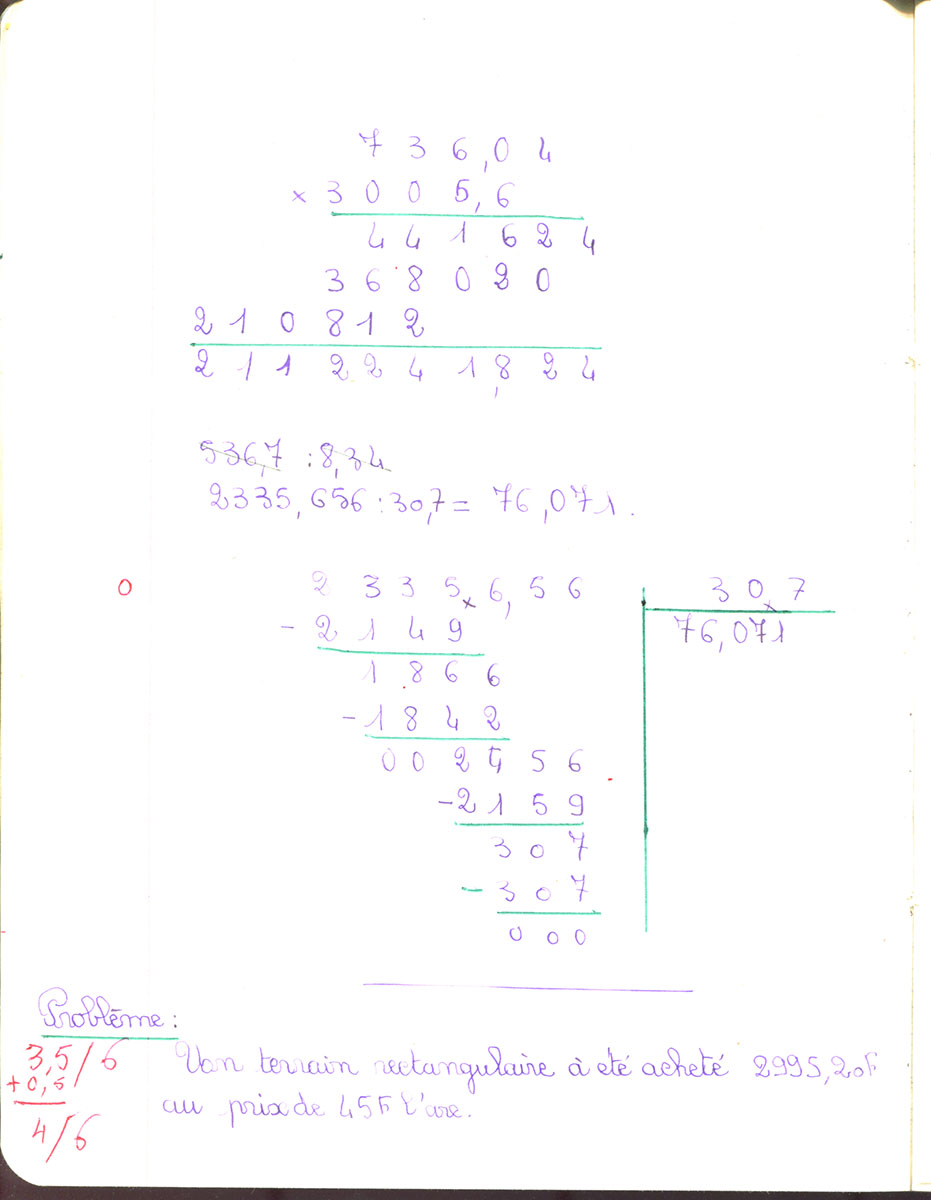 7 3 6,0 4
× 3 0 0 5,6
4 4 1 6 2 4
3 6 8 0 2 0
2 1 0 8 1 2
2 1 1 2 2 4 1,8 2 4
536,7 : 8,34
2335,656 : 30,7 = 76,071.
0 2 3 3 5 6,5 6 30,7
- 2 1 4 9 76,071
1 8 6 6
- 1 8 4 2
0 0 2 4 5 6
- 2 1 5 9
3 0 7
- 3 0 7
0 0 0
Problème :
3,5/6 Uan terrain rectangulaire à eté acheté 2995,20F
+0,5/ au prix de 45F l'are.
4/6